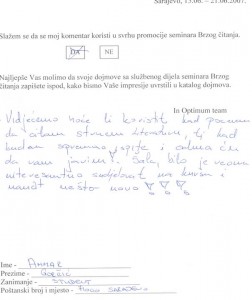 Sarajevo, 15.06. – 21.06.2007.
Slažem se da se moj komentar koristi u svrhu promocije seminara Brzog
čitanja.
DA NE
Najljepše Vas molimo da svoje dojmove sa službenog dijela seminara Brzog
čitanja zapišete ispod, kako bismo Vaše impresije uvrstili u katalog dojmova.
In Optimum team
Vidjećemo hoće li koristiti kad počnem
da čitam stručnu literaturu, tj kad
budem spremao ispite i odmah ću
da vam javim! Šalu, bilo je veoma
interesantno sudjelovati na kursu i
naučit nešto novo
Ime - AMMAR
Prezime -
Zanimanje - STUDENT
Poštanski broj i mjesto - 71000 SARAJEVO